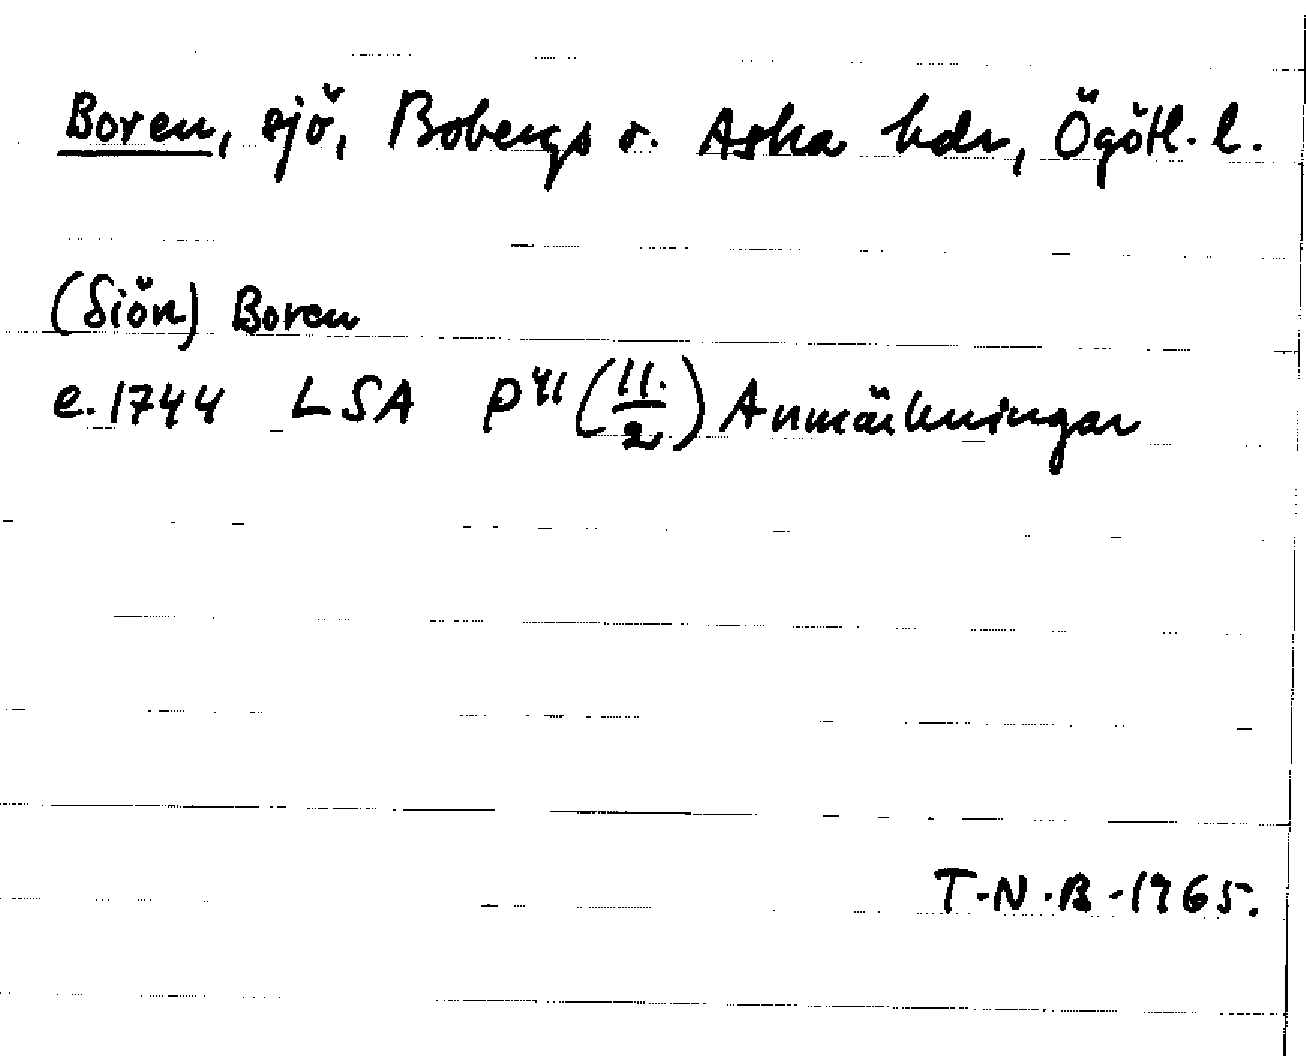 Boren, sjö, Bobergs o. Aska hdr, Ögötl. l.
(Siön) Boren
e. 1744 LSA P41 (11./2) Anmärkningar
T.N.B. 1965.